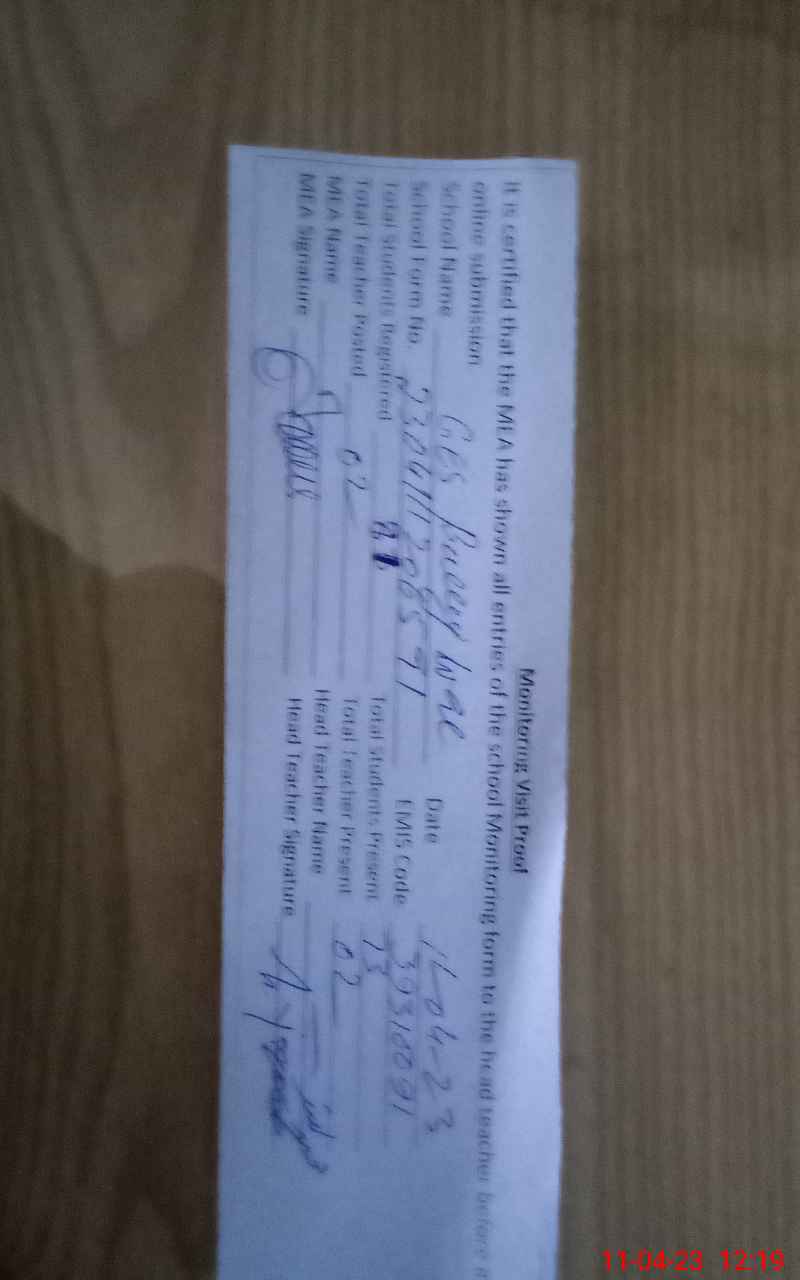 Monitoring Visit Proof
It is certified that the MEA has shown all entries of the school Monitoring form to the head teacher before
online submission
School Name GES Date 11-04-23
School Form No. EMIS Code 39310091
Total Students Registered Total Students Present 13
Total Teacher Posted 02 Total Teacher Present 02
MEA Name Head Teacher Name
MEA Signature Head Teacher Signature
11-04-23 12:19